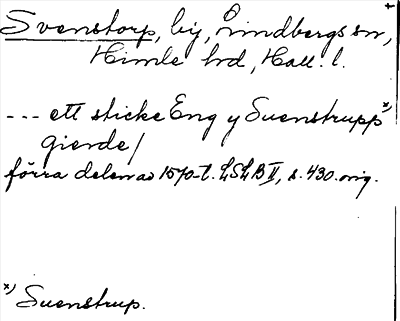 Svenstorp, by, Lindbergs sn,
Himle hd, Hall. l.
--- ett sticke Eng y Suenstrupp x)
gierde/
förra delen av 1570-t. LSLB II, s. 430. orig.
x) Suenstrup.